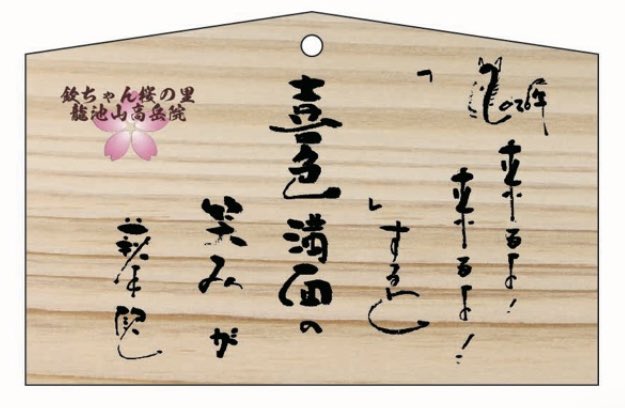 欽ちゃん桜の里
龍池山高岳院
2026年
来るよ!
来るよ!
「 」すると
喜色満面の
笑みが
萩本欽一